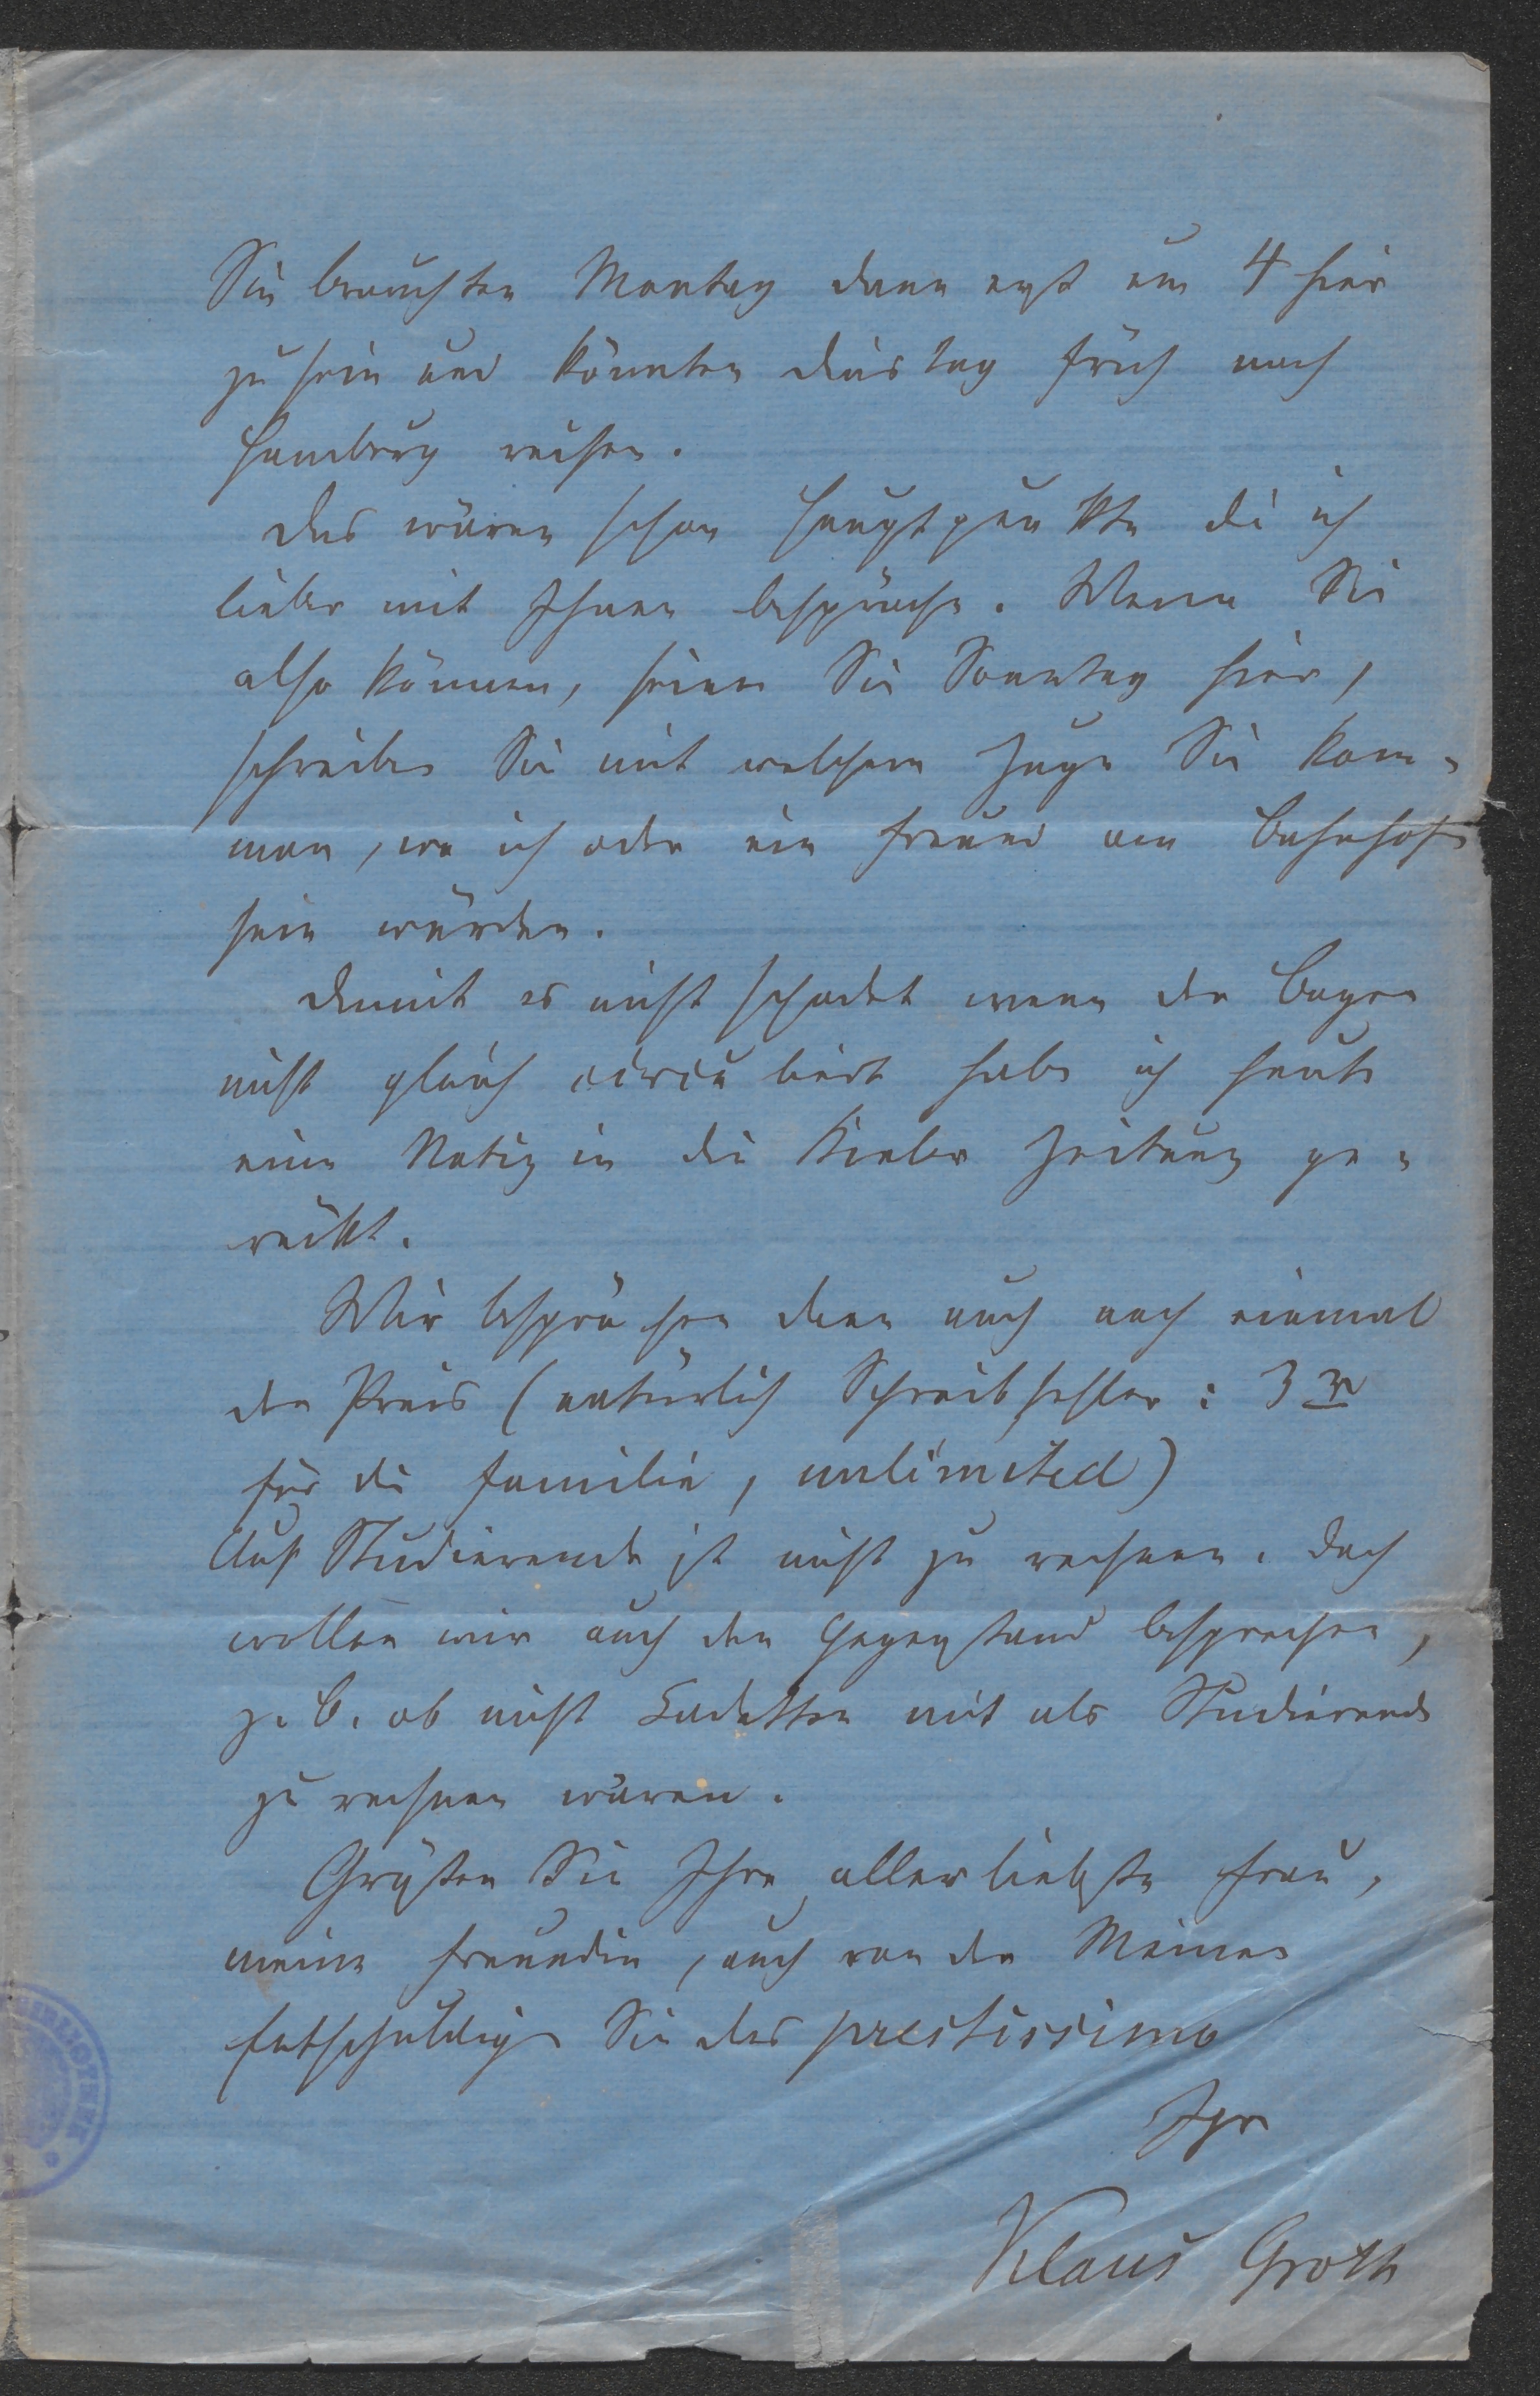 Sie brauchten Montag dann erst um 4 hier
zu sein und könnten Dinstag früh nach
Hamburg reisen.
Das wären schon Hauptpunkte die ich
lieber mit Ihnen bespräche. Wenn Sie
also können, seien Sie Sonntag hier,
schreiben Sie mit welchem Zuge Sie kom-
men, wo ich oder ein Freund am Bahnhof
sein würden.
Damit es nicht schadet wenn der Bogen
nicht gleich circulirt habe ich heute
eine Notiz in die Kieler Zeitung ge-
rückt.
Wir besprächen dann auch noch einmal
den Preis (natürlich Schreibfehler: 3
für die Familie, unlimited)
Auf Studierende ist nicht zu rechnen. Doch
wollen wir auch den Gegenstand besprechen,
z. B. ob nicht Cadetten mit als Studierende
zu rechnen wären.
Grüßen Sie Ihre allerliebste Frau,
meine Freundin, auch von den Meinen
Entschuldigen Sie das prestissimo
Ihr
Klaus Groth